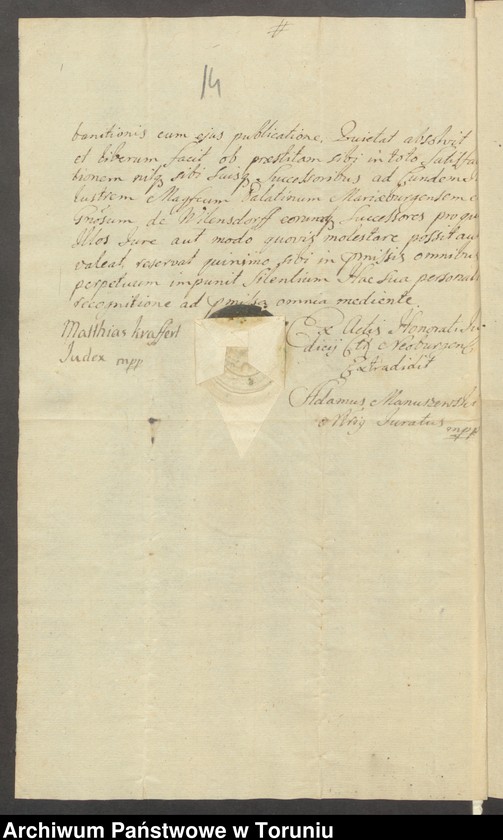 #
14
banitionis cum ejus publicatione. Quietat absolvit
et liberum facit ob præstitam sibi in toto satisfac
tionem suisq sibi suisq Successoribus ad Eundem
lustrem Magficum Palatinum Mariæburgensem
de Wilensdorff eorumq Successores pro quo
Illos Jure aut modo quovis molestare possit aut
valeat, reservat quinimo sibi in pmissis omnibus
perpetuum imponit Silentium Hac sua personali
recognitione ad pmissa omnia mediente.
Matthias Kraffert
Judex mpp
Ex Actis Honorati Ju
dicij Neoburgens
Extradidit
Adamus Manuszewski
Juratus mpp
Archiwum Państwowe w Toruniu